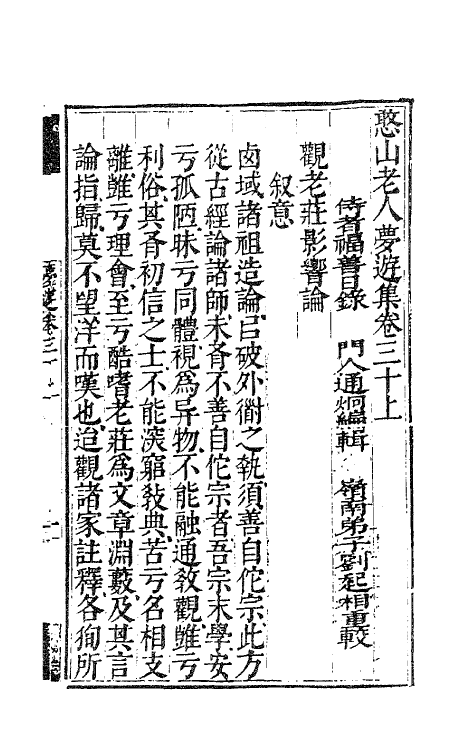 憨山老人夢遊集卷三十上
侍者福善日錄　門人通炯編輯　嶺南弟子劉起相重較
觀老莊影響論
叙意
西域諸祖造論㠯破外衜之執須善自佗宗此方
從古經論諸師未𣥂不善自佗宗者吾宗末學安
亏孤陋昧亏同體視爲异物不能融通敎觀雖亏
利俗其𣥂初信之士不能㴱窮敎典苦亏名相支
離雖亏理會至亏酷嗜老莊爲文章淵藪及其言
論指歸莫不望洋而嘆也迨觀諸家註釋各徇所